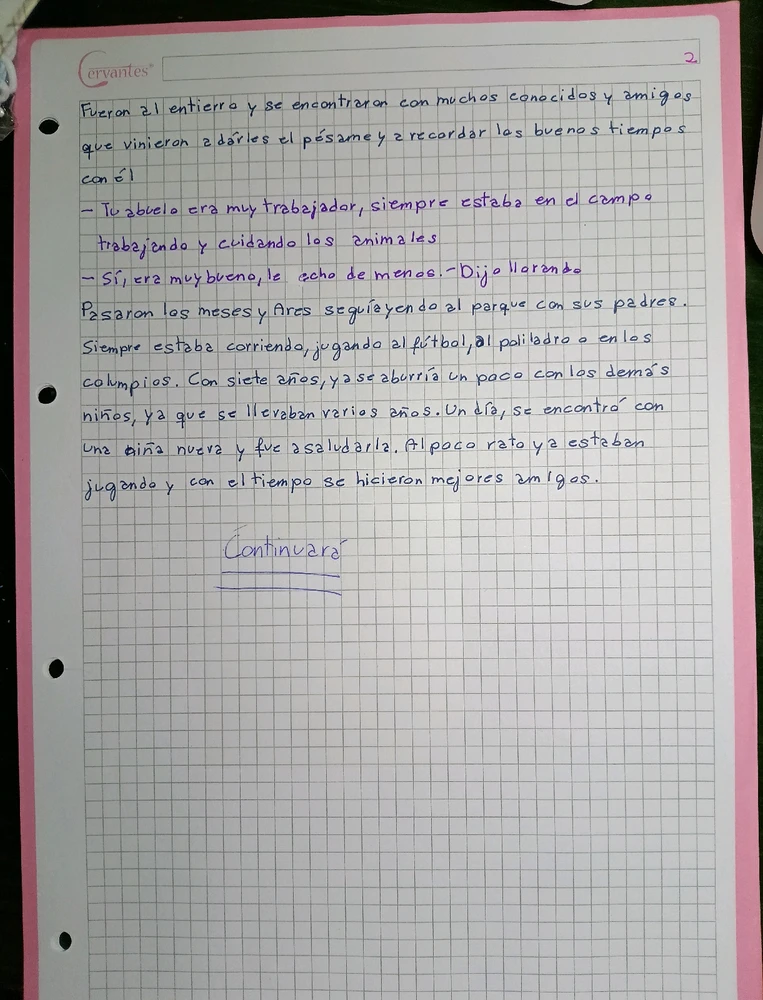 Cervantes®
2
Fueron al entierro y se encontraron con muchos conocidos y amigos
que vinieron a dárles el pésame y a recordar los buenos tiempos
con él
- Tu abuelo era muy trabajador, siempre estaba en el campo
trabajando y cuidando los animales
- Sí, era muy bueno, le echo de menos. - Dijo llorando
Pasaron los meses y Ares seguía yendo al parque con sus padres.
Siempre estaba corriendo, jugando al fútbol, al poliladro o en los
columpios. Con siete años, ya se aburría un poco con los demás
niños, ya que se llevaban varios años. Un día, se encontró con
una niña nueva y fue a saludarla. Al poco rato ya estaban
jugando y con el tiempo se hicieron mejores amigos.
Continuará